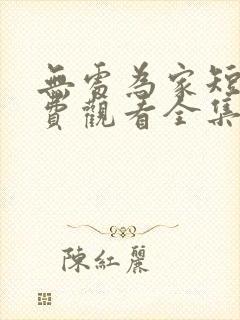 無處為家短
費觀看全集
陳紅麗